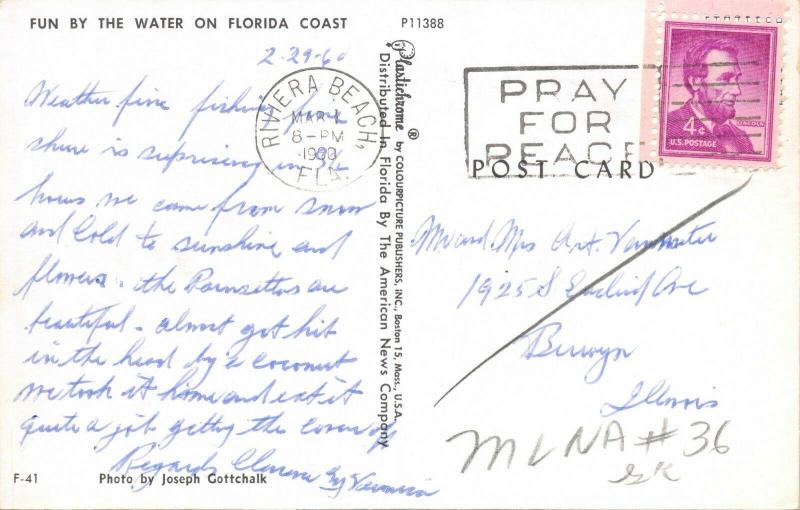 FUN BY THE WATER ON FLORIDA COAST P11388
2-29-60
Weather fine fishing from
shore is suprising in 32
hours we came from snow
and Cold to sunshine and
flowers. the Poinsettas are
beautiful - almost got hit
in the head by a coconut
we took it home and ate it
quite a job getting the cover off
Regards Clarence and Veronica
F-41 Photo by Joseph Gottchalk
Plastichrome ® by COLOURPICTURE PUBLISHERS, INC., Boston 15, Mass., U.S.A.
Distributed In Florida By The American News Company
RIVIERA BEACH,
MAR 1
8-PM
1960
FLA.
PRAY
FOR
PEACE
LINCOLN
4¢
U.S. POSTAGE
POST CARD
Mr and Mrs Art.
1925 S Euclid Ave
Berwyn
Illinois
NA # 36